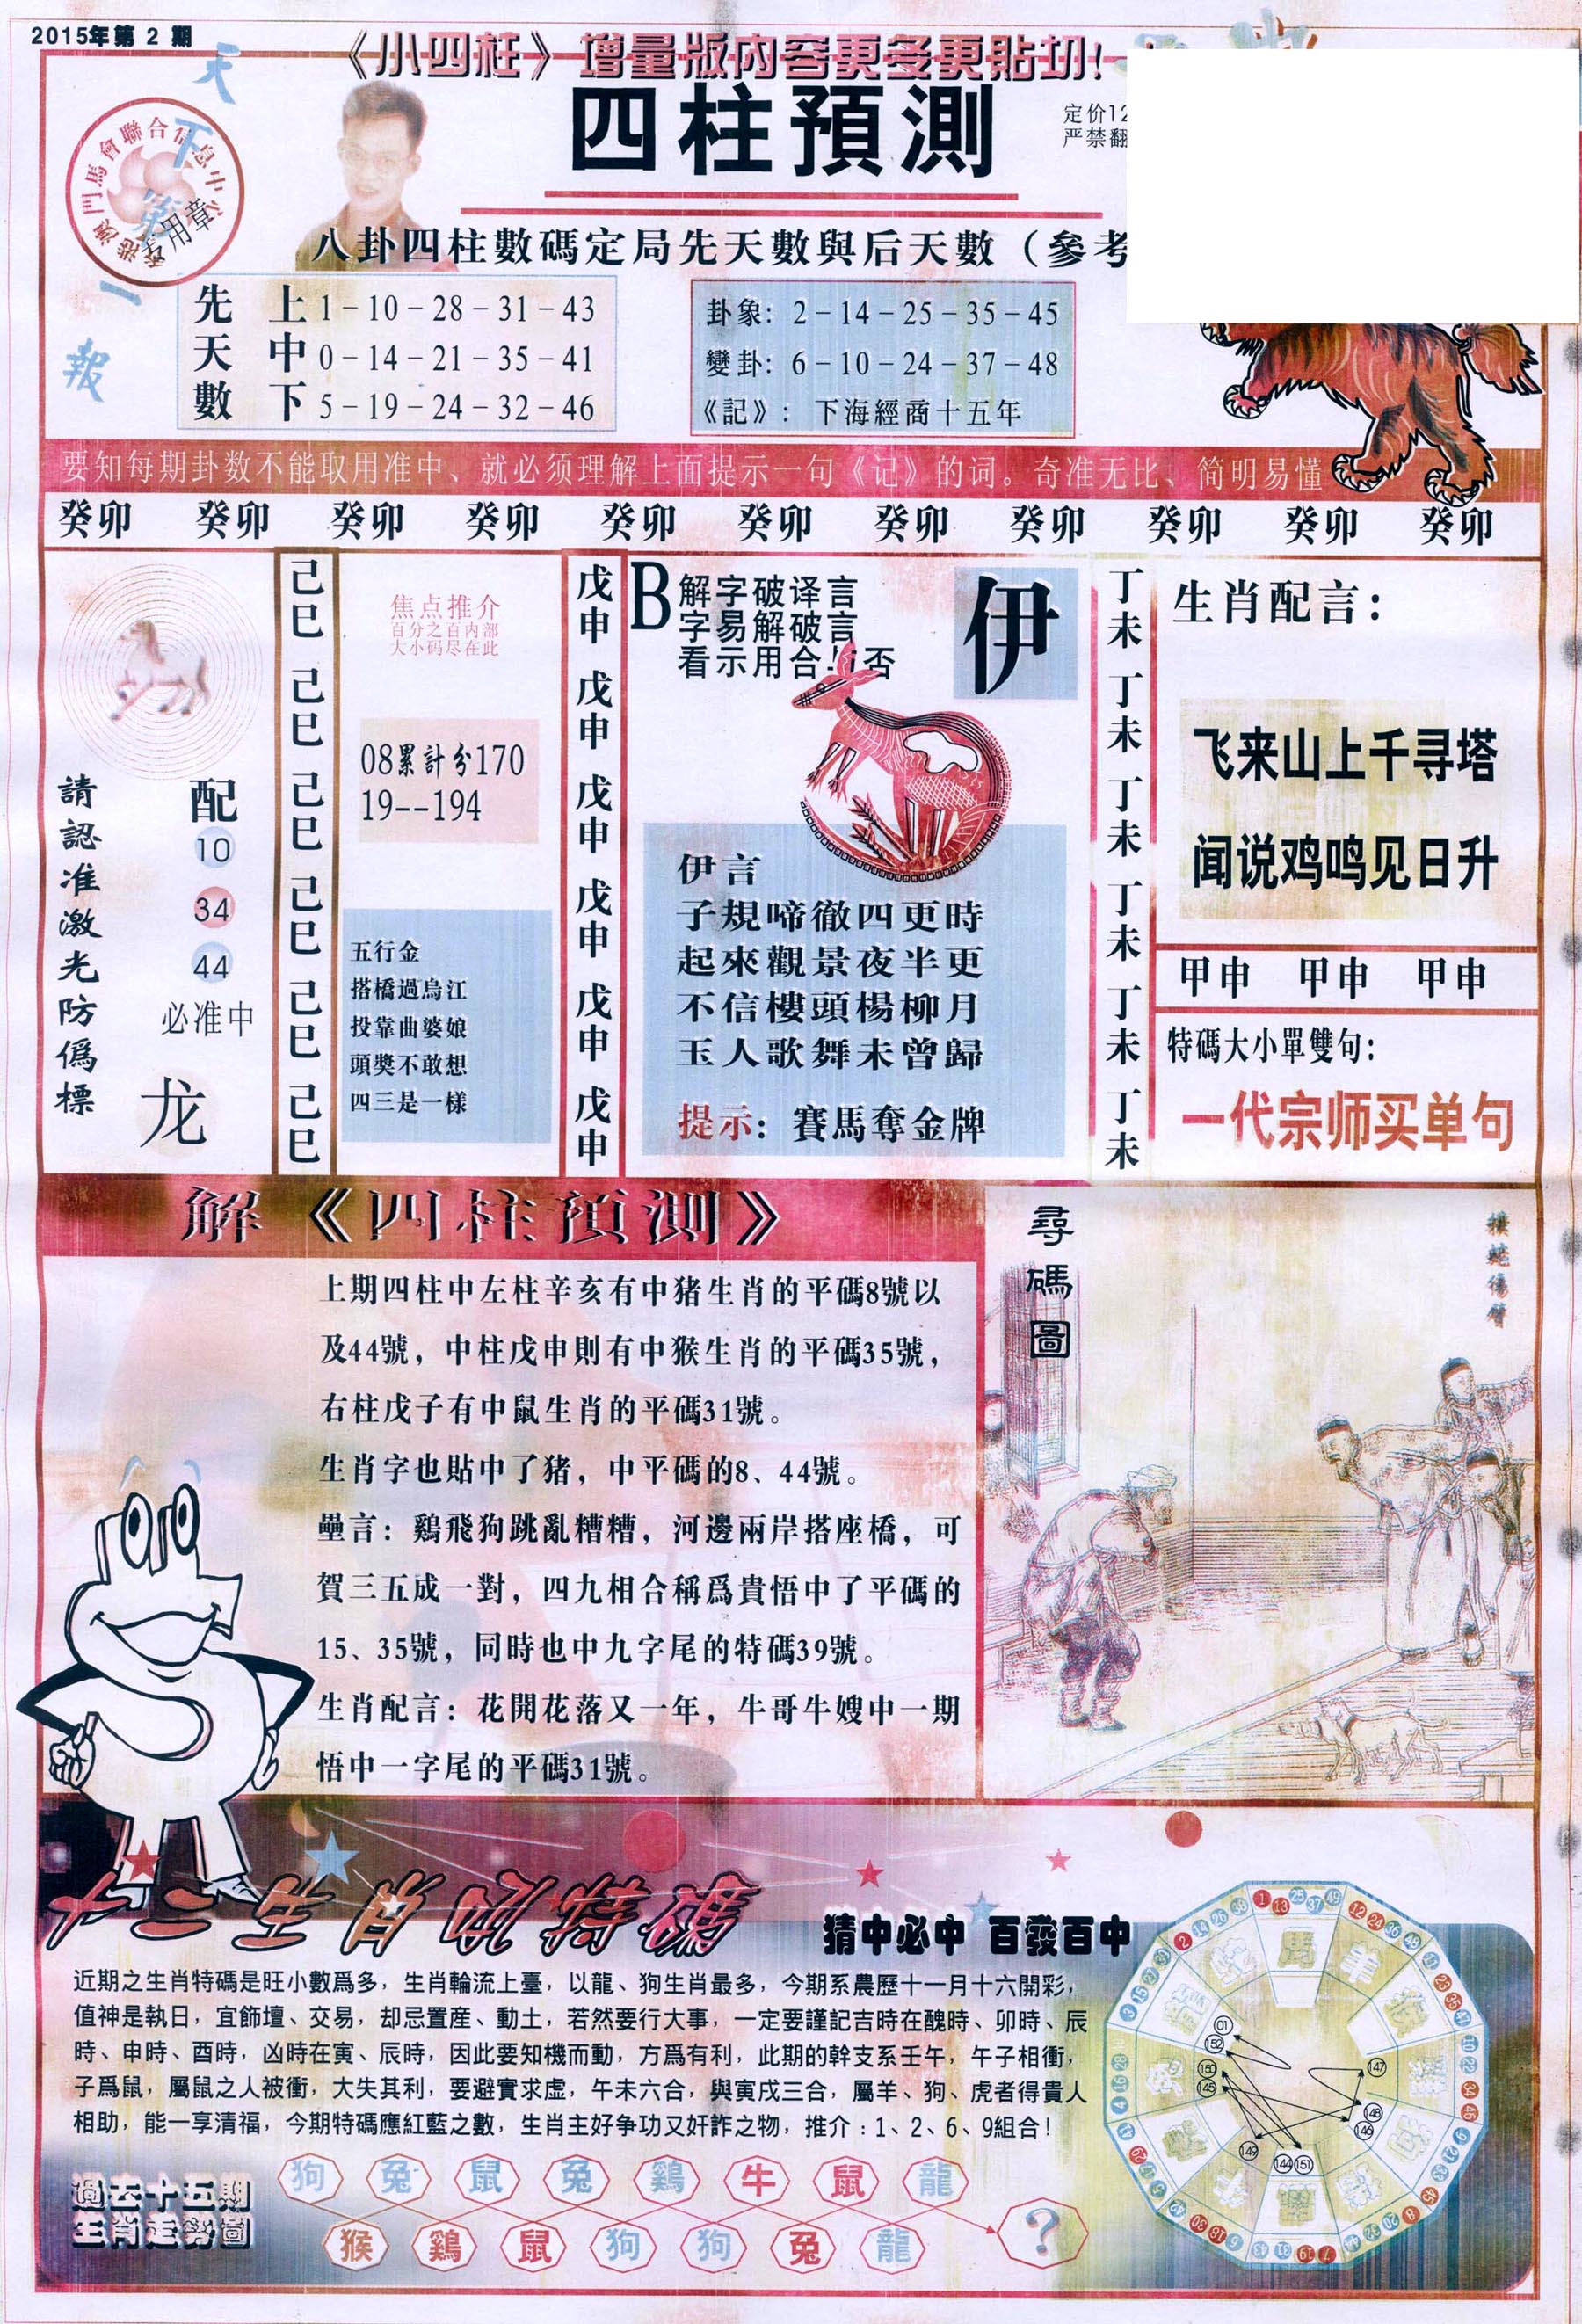 2015年第 2 期
《小四柱》增量版內容更多更貼切！
天下第一報
四柱預測
定价12
严禁翻
专用章
八卦四柱數碼定局先天數與后天數（參考
先天數
上 1－10－28－31－43
中 0－14－21－35－41
下 5－19－24－32－46
卦象：2－14－25－35－45
變卦：6－10－24－37－48
《記》：下海經商十五年
要知每期卦数不能取用准中、就必须理解上面提示一句《记》的词。奇准无比、简明易懂
癸卯 癸卯 癸卯 癸卯 癸卯 癸卯 癸卯 癸卯 癸卯 癸卯 癸卯
請認准激光防僞標
配
10
34
44
必准中
龙
己巳 己巳 己巳 己巳 己巳 己巳
焦点推介
百分之百内部
大小码尽在此
08累計分170
19--194
五行金
搭橋過烏江
投靠曲婆娘
頭獎不敢想
四三是一樣
戊申 戊申 戊申 戊申 戊申 戊申
B
解字破译言
字易解破言
看示用合与否
伊
伊言
子規啼徹四更時
起來觀景夜半更
不信樓頭楊柳月
玉人歌舞未曾歸
提示：賽馬奪金牌
丁未 丁未 丁未 丁未 丁未 丁未
生肖配言：
飞来山上千寻塔
闻说鸡鸣见日升
甲申 甲申 甲申
特碼大小單雙句：
一代宗师买单句
解《四柱預測》
上期四柱中左柱辛亥有中猪生肖的平碼8號以
及44號，中柱戊申則有中猴生肖的平碼35號，
右柱戊子有中鼠生肖的平碼31號。
生肖字也貼中了猪，中平碼的8、44號。
壘言：鷄飛狗跳亂糟糟，河邊兩岸搭座橋，可
賀三五成一對，四九相合稱爲貴悟中了平碼的
15、35號，同時也中九字尾的特碼39號。
生肖配言：花開花落又一年，牛哥牛嫂中一期
悟中一字尾的平碼31號。
尋碼圖
十二生肖四特碼
猜中必中 百發百中
近期之生肖特碼是旺小數爲多，生肖輪流上臺，以龍、狗生肖最多，今期系農歷十一月十六開彩，
值神是執日，宜飾壇、交易，却忌置産、動土，若然要行大事，一定要謹記吉時在醜時、卯時、辰
時、申時、酉時，凶時在寅、辰時，因此要知機而動，方爲有利，此期的幹支系壬午，午子相衝，
子爲鼠，屬鼠之人被衝，大失其利，要避實求虚，午未六合，與寅戌三合，屬羊、狗、虎者得貴人
相助，能一享清福，今期特碼應紅藍之數，生肖主好争功又奸詐之物，推介：1、2、6、9組合！
過去十五期
生肖走勢圖
狗 兔 鼠 兔 鷄 牛 鼠 龍
猴 鷄 鼠 狗 狗 兔 龍 ?
馬 羊
01
152
150
145
147
148
146
149
144 151